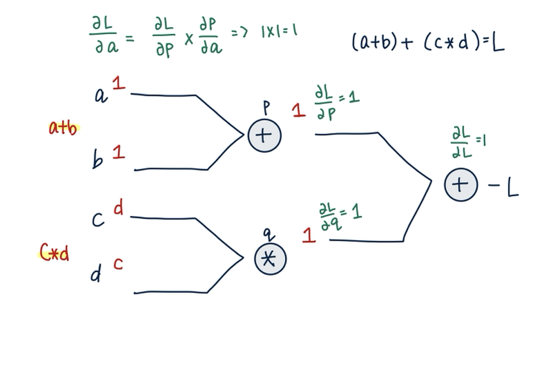 ∂L/∂a = ∂L/∂p × ∂p/∂a => 1×1=1
(a+b) + (c*d) = L
a 1
a+b
b 1
p
+
1 ∂L/∂p = 1
∂L/∂L = 1
+ - L
c d
C*d
d c
q
*
1 ∂L/∂q = 1